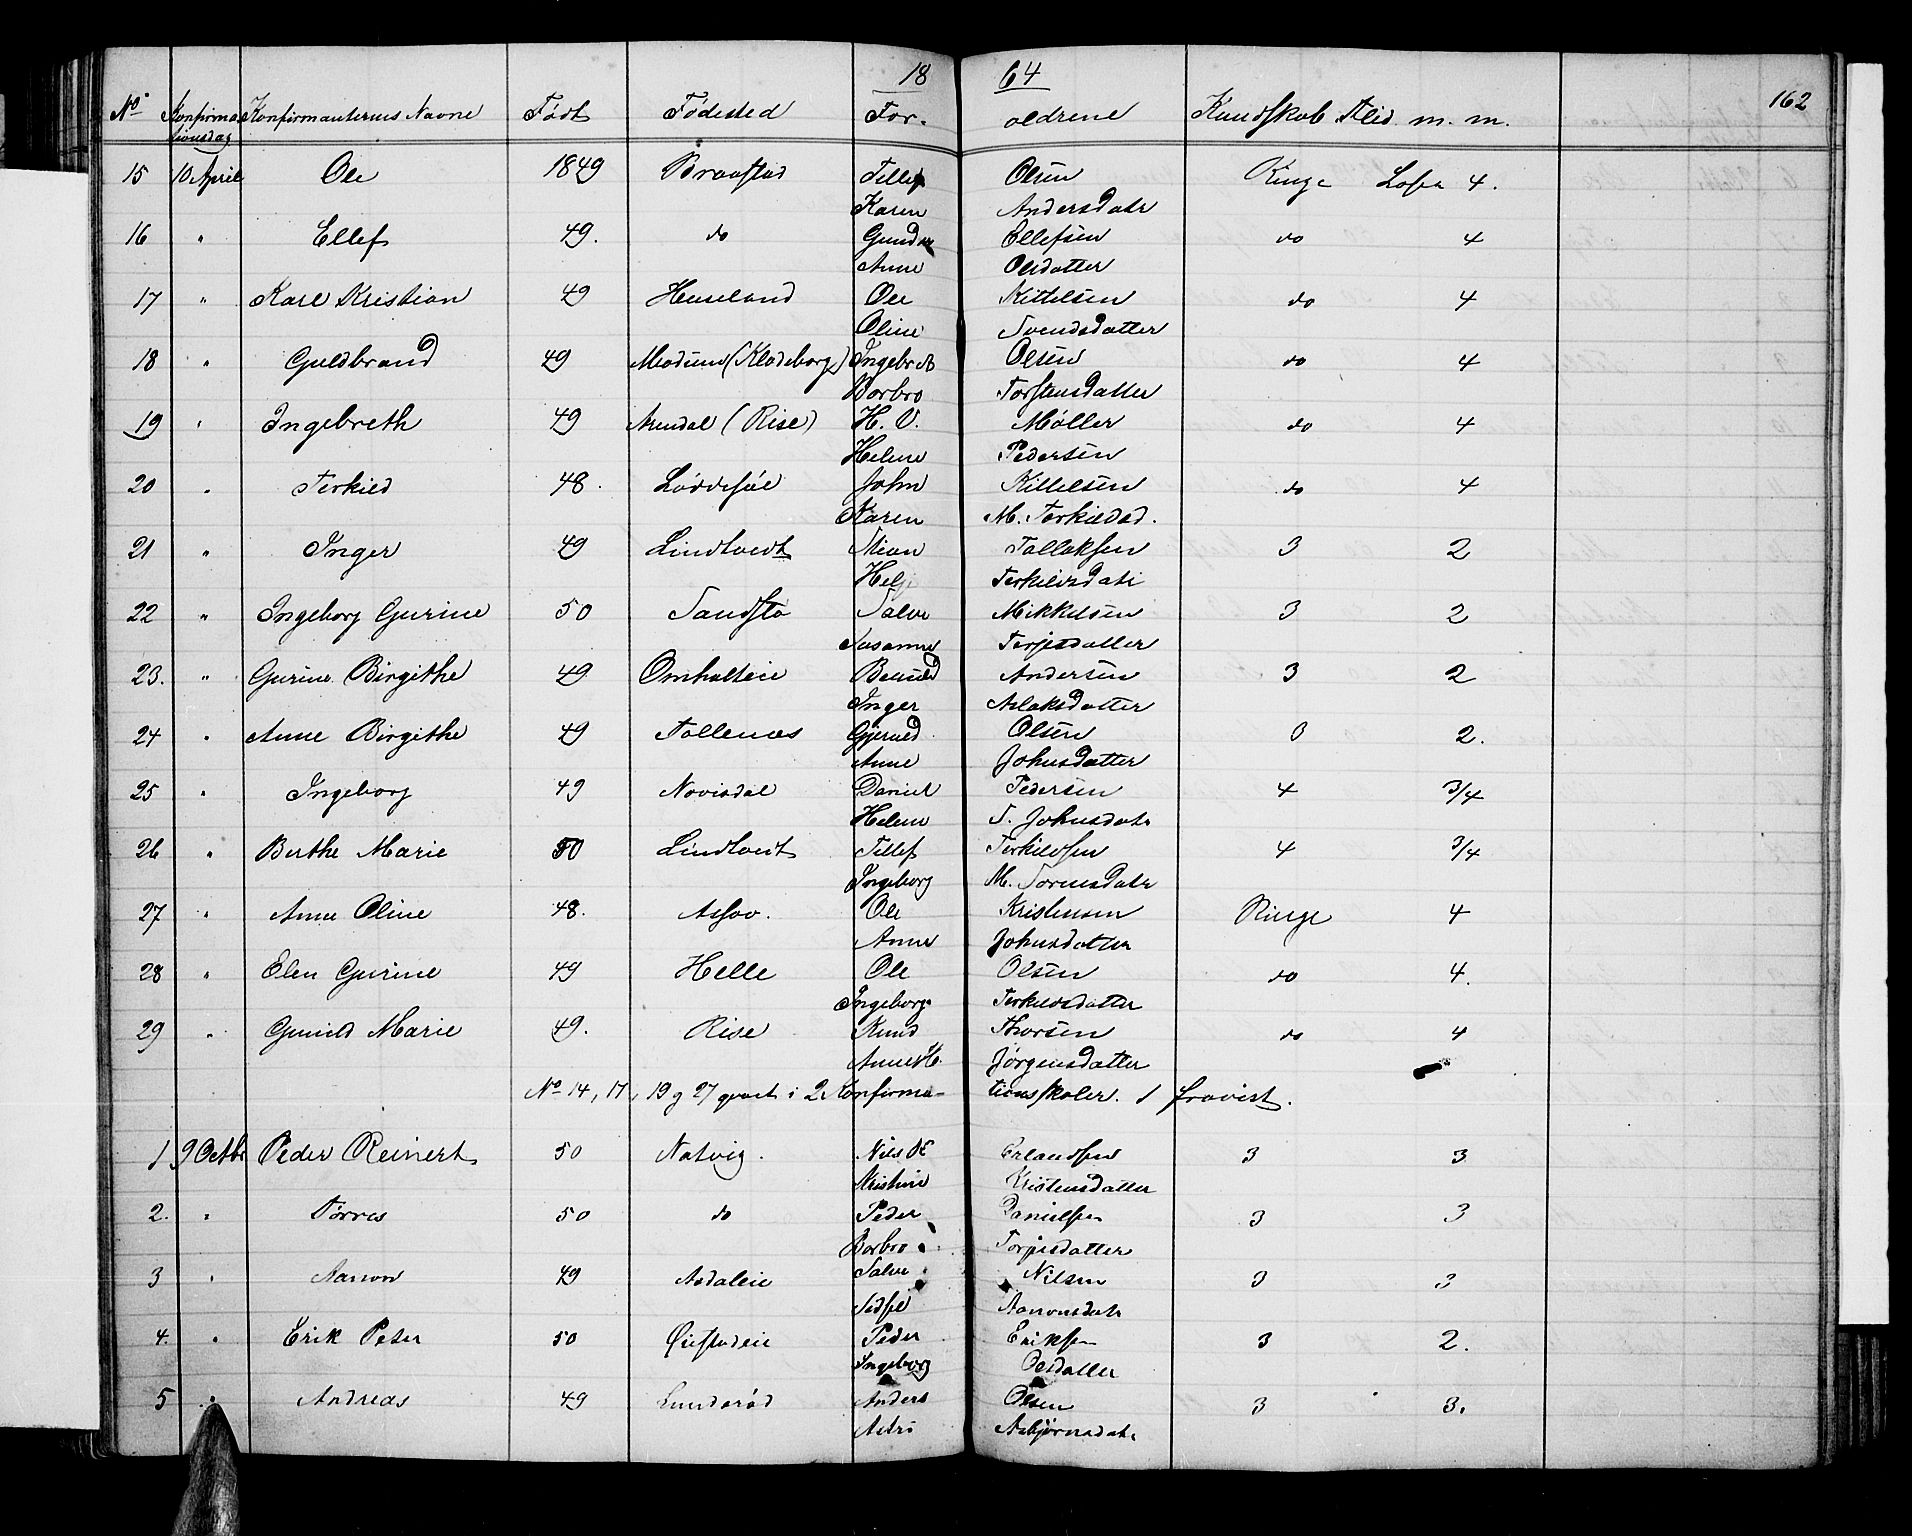 18 64
162
No. Konfirma Konfirmanternes Navne Født Fødested For- ældrene Kundskab Flid m. m.
tionsdag
15 10 April Ole 1849 Braastad Tellef Olsen Ringe Lofa 4.
Karen Andersdatr
16 " Ellef 49. do Gunder Ellefsen do 4
Anne Olsdatter
17 " Karl Kristian 49 Huseland Ole Kittelsen do 4
Oline Svendsdatter
18 " Guldbrand 49 Modum (Kladeborg) Ingebret Olsen do 4
Borbro Torstensdatter
19 " Ingebreth 49 Arendal (Rise) H. V. Møller do 4
Helene Pedersen
20 " Terkild 48. Løddesøl John Kittelsen do 4
Karen M. Terkildsd.
21 " Inger 49 Lindtvedt Stian Tallaksen 3 2
Helje Terkildsdatr
22 " Ingeborg Gurine 50 Sandstø Salve Mikkelsen 3 2
Susanne Terjesdatter
23. " Gurine Birgithe 49 Omholteie Andersen 3 2
Inger Aslaksdatter
24 " Anne Birgithe 49 Tollenæs Gjeruld Olsen 3 2.
Anne Johnsdatter
25 " Ingeborg 49 Novisdal Daniel Pedersen 4 3/4
Helene S. Johnsdatr
26 " Berthe Marie 50 Lindtvedt Tellef Terkildsen 4 3/4
Ingeborg M. Sørensdatr
27 " Anne Oline 48. Assav. Ole Kristensen Ringe 4
Anne Johnsdatter
28 " Elen Gurine 49 Helle Ole Olsen do 4.
Ingeborg Terkildsdatter
29 " Gunild Marie 49. Rise Knud Thorsen do 4
Anne K. Jørgensdatter
No 14, 17, 19 g 27 gaaet i 2 Konfirma- tionsskoler. 1 fravist.
1 9 Octbr Peder Reinert 50 Natvig. Nils Erlandsen 3 3
Kristine Kristensdatter
2. " Tørres 50 do Peder Danielsen 3 3
Borbro Torjesdatter
3 " Aanon 49 Asdaleie Salve Nilsen 3 3
Sidsel Aanonsdatr
4. " Erik Peter 50 Øiestadeie Peder Eriksen 3 2.
Ingeborg Olsdatter
5 " Andreas 49 Lunderød Anders Olsen 3 3.
Astri Asbjørnsdatr